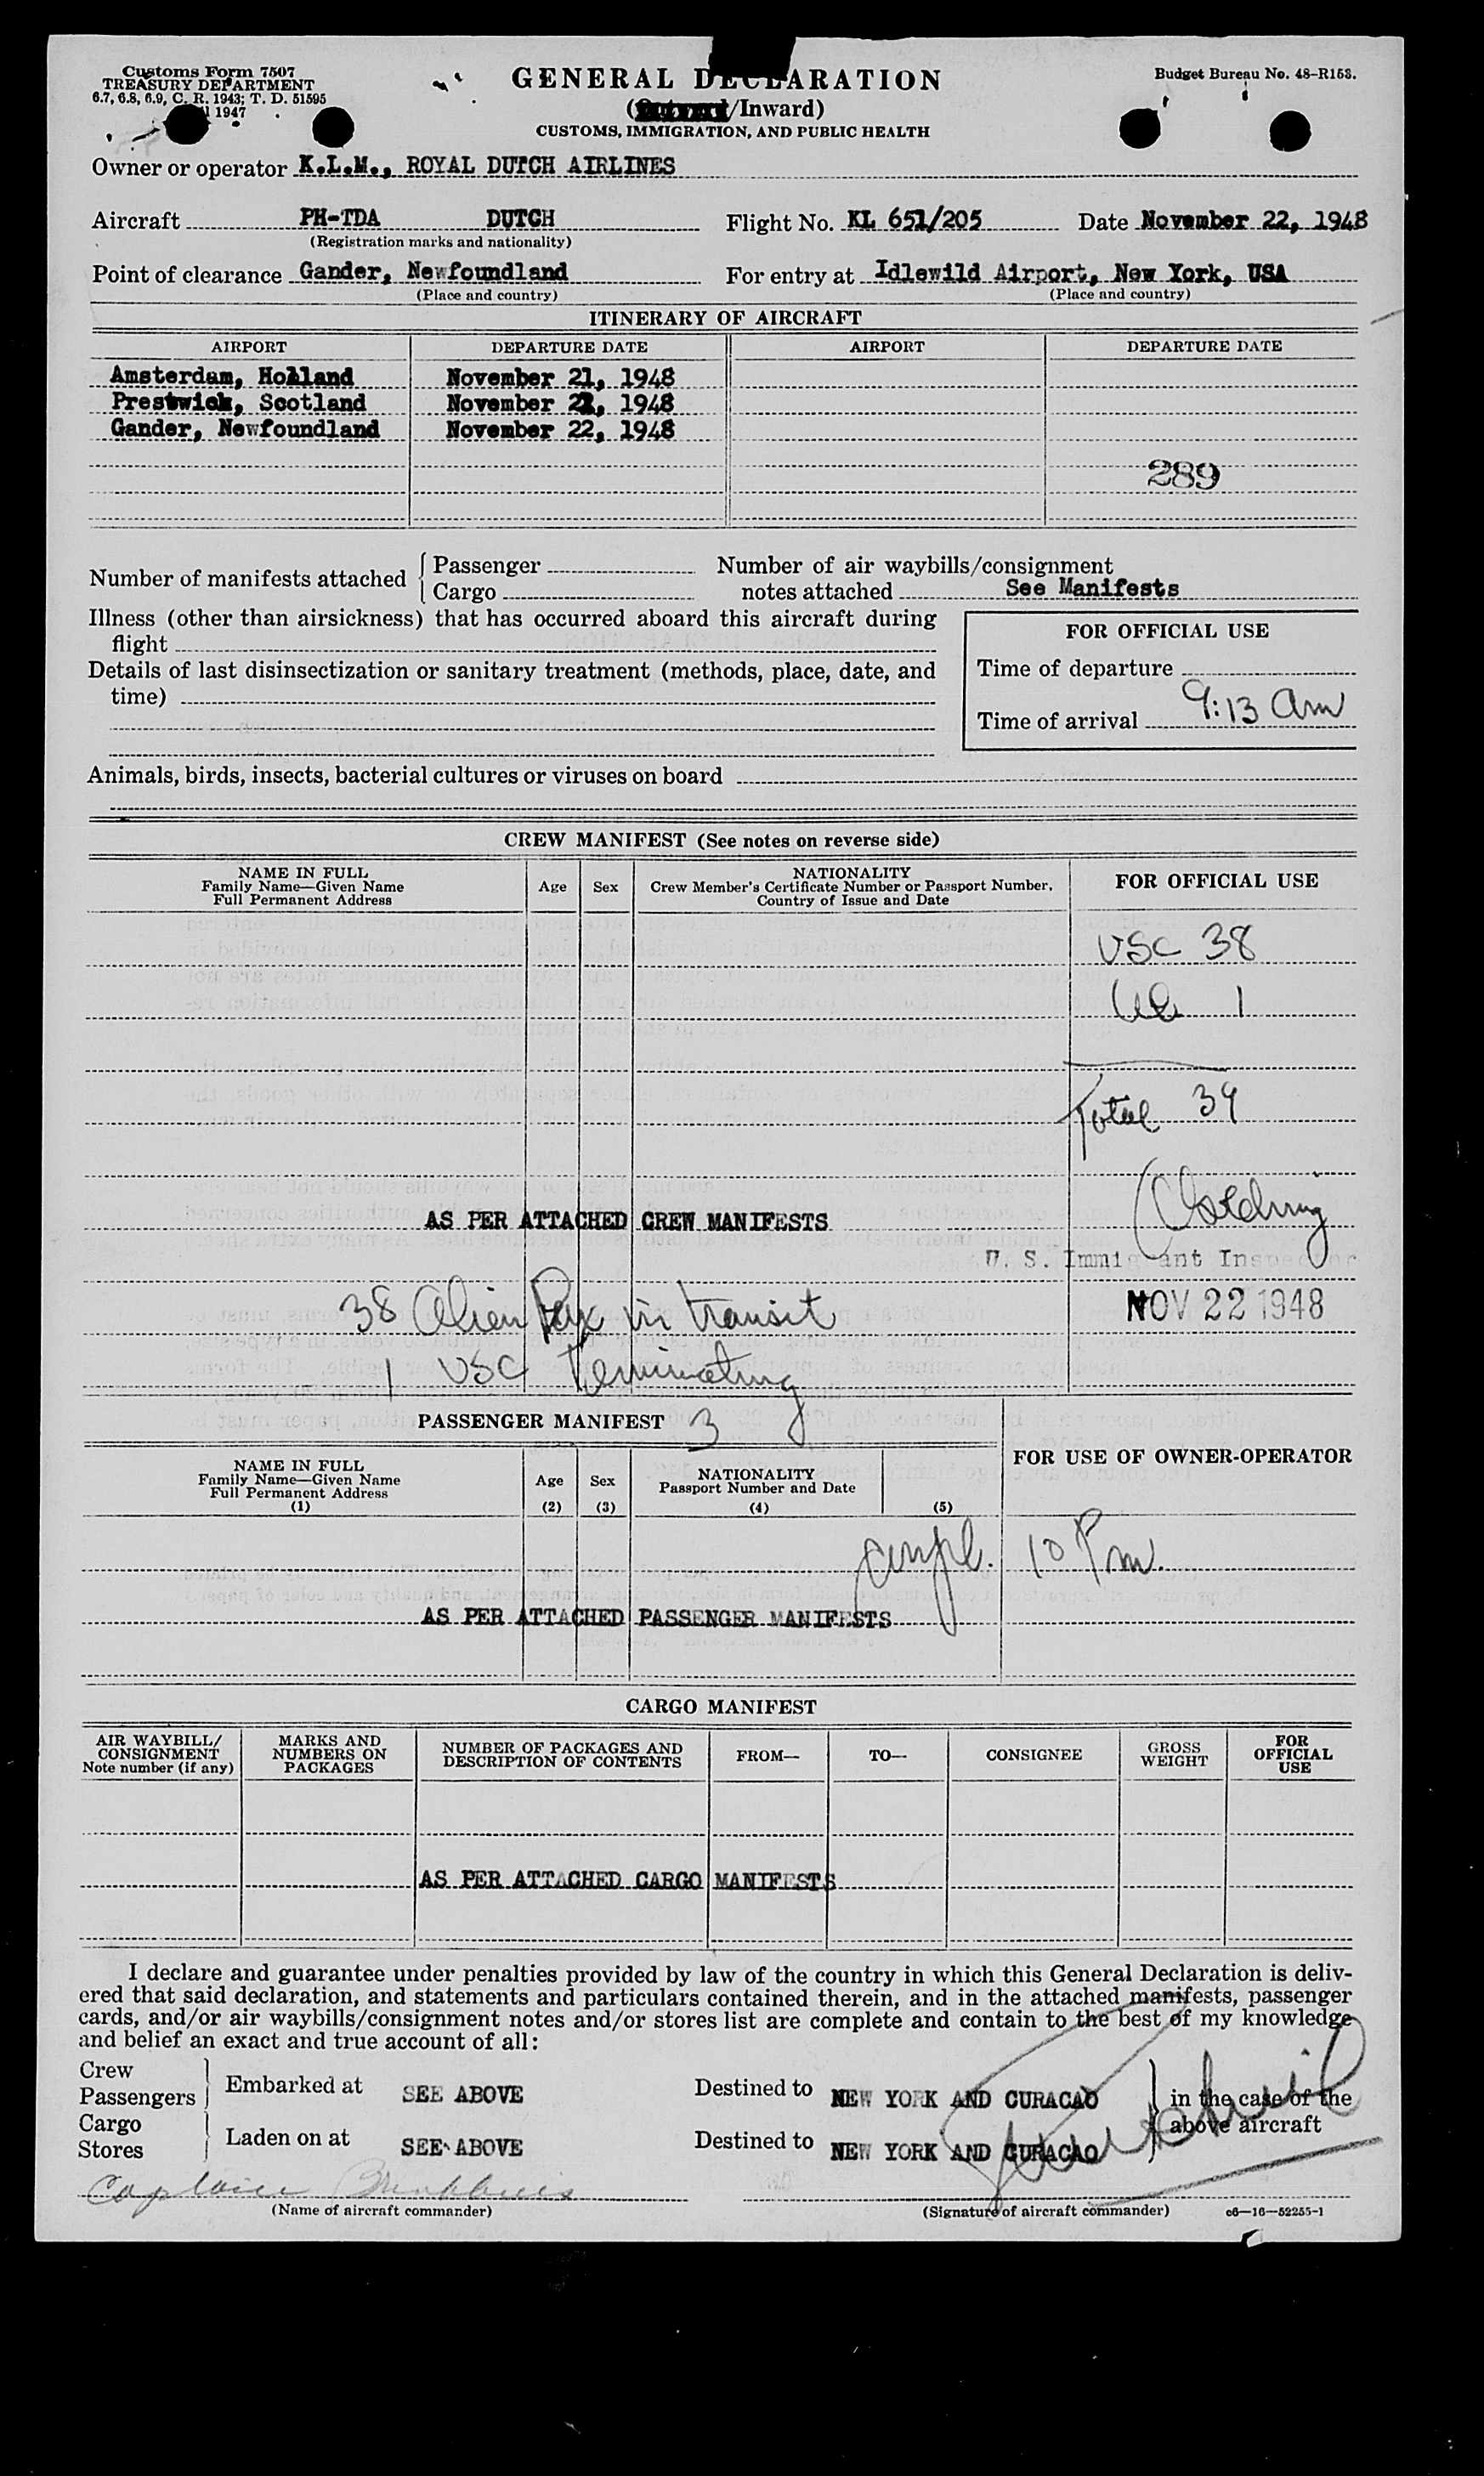 Customs Form 7507
TREASURY DEPARTMENT
6.7, 6.8, 6.9, C. R. 1943; T. D. 51595
1947
GENERAL DECLARATION
(/Inward)
CUSTOMS, IMMIGRATION, AND PUBLIC HEALTH
Budget Bureau No. 48-R153.
Owner or operator K.L.M., ROYAL DUTCH AIRLINES
Aircraft PH-TDA DUTCH Flight No. KL 651/205 Date November 22, 1948
(Registration marks and nationality)
Point of clearance Gander, Newfoundland For entry at Idlewild Airport, New York, USA
(Place and country) (Place and country)
ITINERARY OF AIRCRAFT
AIRPORT DEPARTURE DATE AIRPORT DEPARTURE DATE
Amsterdam, Holland November 21, 1948
Prestwick, Scotland November , 1948
Gander, Newfoundland November 22, 1948
289
Number of manifests attached { Passenger Number of air waybills/consignment
Cargo notes attached See Manifests
Illness (other than airsickness) that has occurred aboard this aircraft during
flight
Details of last disinsectization or sanitary treatment (methods, place, date, and
time)
FOR OFFICIAL USE
Time of departure
Time of arrival 9:13 am
Animals, birds, insects, bacterial cultures or viruses on board
CREW MANIFEST (See notes on reverse side)
NAME IN FULL
Family Name—Given Name
Full Permanent Address
Age Sex
NATIONALITY
Crew Member's Certificate Number or Passport Number,
Country of Issue and Date
FOR OFFICIAL USE
USC 38
1
Total 39
AS PER ATTACHED CREW MANIFESTS
U. S. Immigrant Inspector
NOV 22 1948
38 Alien Pax in transit
1 USC Terminating
PASSENGER MANIFEST 3
FOR USE OF OWNER-OPERATOR
NAME IN FULL
Family Name—Given Name
Full Permanent Address
(1)
Age
(2)
Sex
(3)
NATIONALITY
Passport Number and Date
(4) (5)
10 Pm.
AS PER ATTACHED PASSENGER MANIFESTS
CARGO MANIFEST
AIR WAYBILL/
CONSIGNMENT
Note number (if any)
MARKS AND
NUMBERS ON
PACKAGES
NUMBER OF PACKAGES AND
DESCRIPTION OF CONTENTS
FROM— TO— CONSIGNEE
GROSS
WEIGHT
FOR
OFFICIAL
USE
AS PER ATTACHED CARGO MANIFESTS
I declare and guarantee under penalties provided by law of the country in which this General Declaration is deliv-
ered that said declaration, and statements and particulars contained therein, and in the attached manifests, passenger
cards, and/or air waybills/consignment notes and/or stores list are complete and contain to the best of my knowledge
and belief an exact and true account of all:
Crew
Passengers } Embarked at SEE ABOVE Destined to NEW YORK AND CURACAO
Cargo
Stores } Laden on at SEE ABOVE Destined to NEW YORK AND CURACAO
} in the case of the
above aircraft
Captain
(Name of aircraft commander) (Signature of aircraft commander) c6—16—52255-1